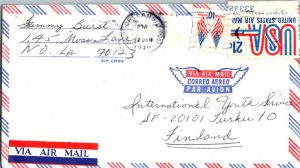 Sammy Burst
145 Mosan Lane
N.O. LA 70123
ZIP CODE
PM
1976
10
21c
USA
UNITED STATES AIR MAIL
VIA AIR MAIL
CORREO AEREO
PAR AVION
International Youth Service
SF-20101 Turku 10
Finland
VIA AIR MAIL